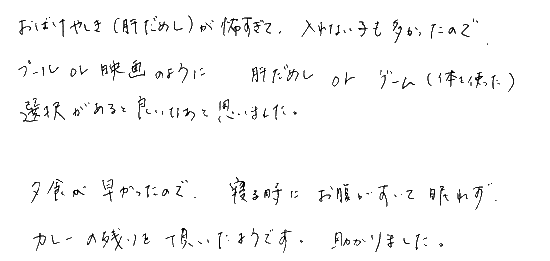 おばけやしき(肝だめし)が怖すぎて、入れない子も多かったので、
プール or 映画のように 肝だめし or ゲーム(体を使った)
選択があると良いなあと思いました。
夕食が早かったので、寝る時にお腹がすいて眠れず、
カレーの残りを頂いたようです。助かりました。